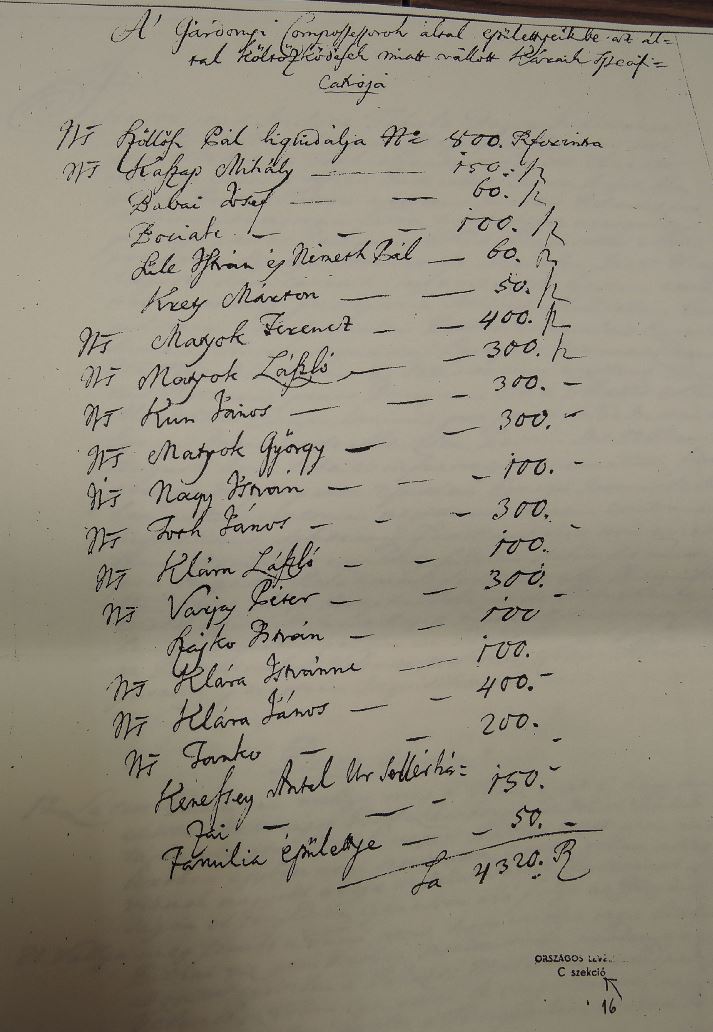 A' Gárdonyi Compossessorok által épülettyeikbe az ál=
tal költözködések miatt vallott Károk Specifi=
catiója
Ns Szöllősy Pál liquidálja No 800. Rforintra
Ns Kaszap Mihály — 150. f
Babai Josef — — 60. f
Bociate — — — 100. f
Lile István és Németh Pál — 60. f
Kretz Márton — — 50. f
Ns Matyok Ferencz — — 400. f
Ns Matyok László — — 300. f
Ns Kun János — — 300. —
Ns Matyok György — — 300. —
Ns Nagy István — — — 100. —
Ns Toth János — — — 300. —
Ns Klára László — — 100.
Ns Varjas Péter — — 300. —
Hajko István — — 100
Ns Klára Istvánne — 100.
Ns Klára János — — 400. —
Ns Tanko — — 200. —
Kenessey Antal Ur Sellérhá=
zai — — — 150. —
Familia épülettye — — 50. —
Sa 4320. R
ORSZÁGOS LEVÉL
C szekció
16